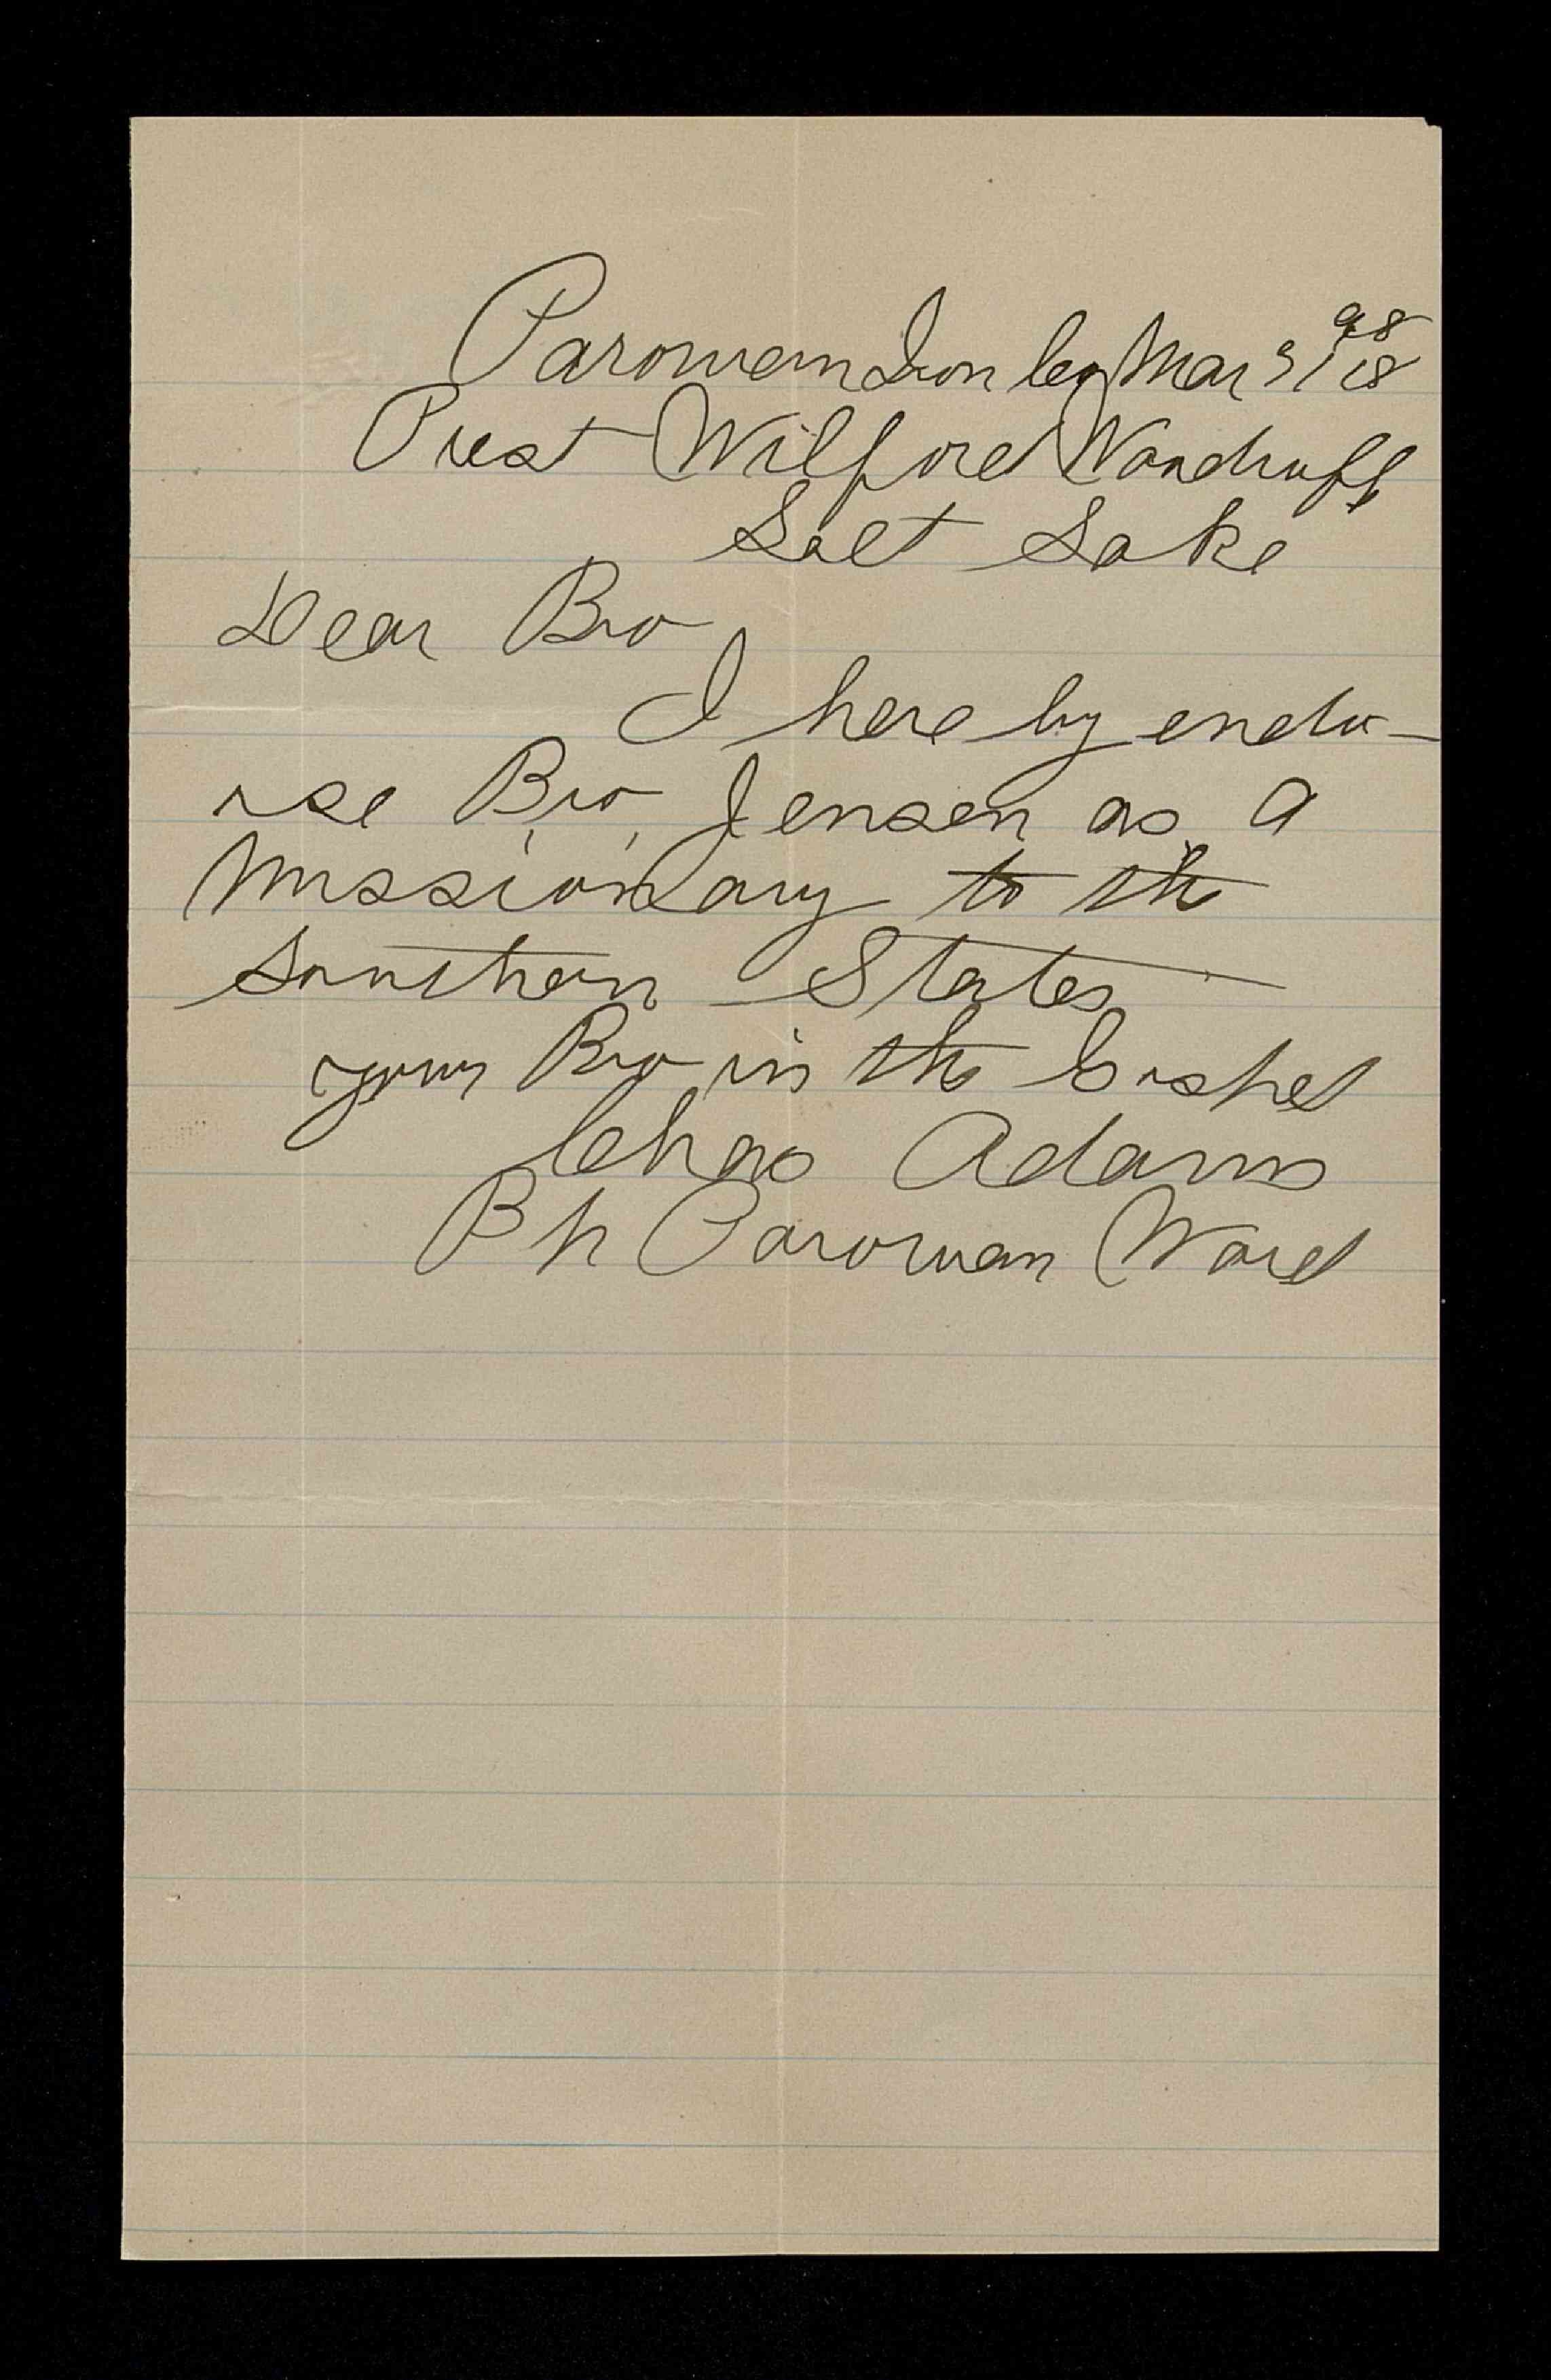 Parowan Iron Co Mar 31 1898
Prest Wilford Woodruff
Salt Lake
Dear Bro
I here by endo-
rse Bro, Jensen as a
Missionary to the
Southern States
your Bro in the Gospel
Chas Adams
Bp Parowan Ward